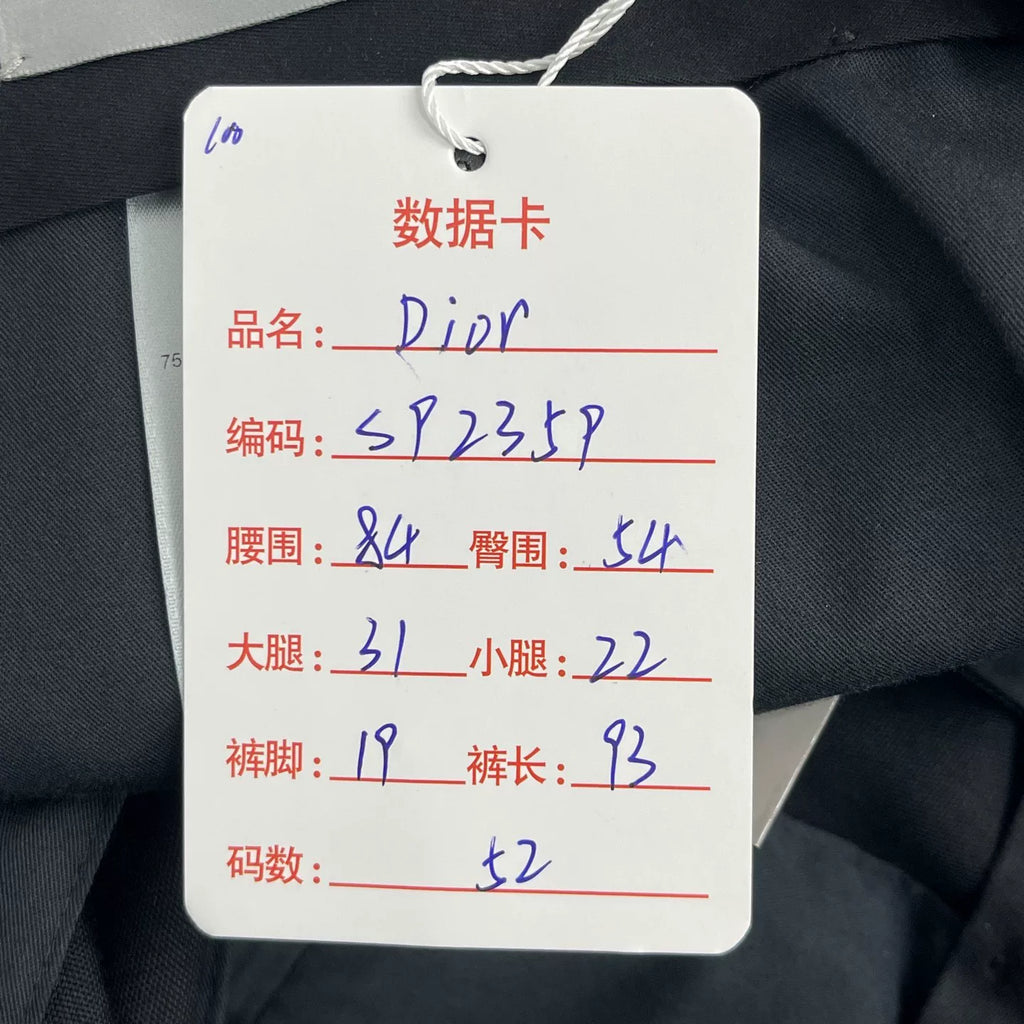 100
数据卡
品名: Dior
编码: SP2359
75
腰围: 84 臀围: 54
大腿: 31 小腿: 22
裤脚: 19 裤长: 93
码数: 52